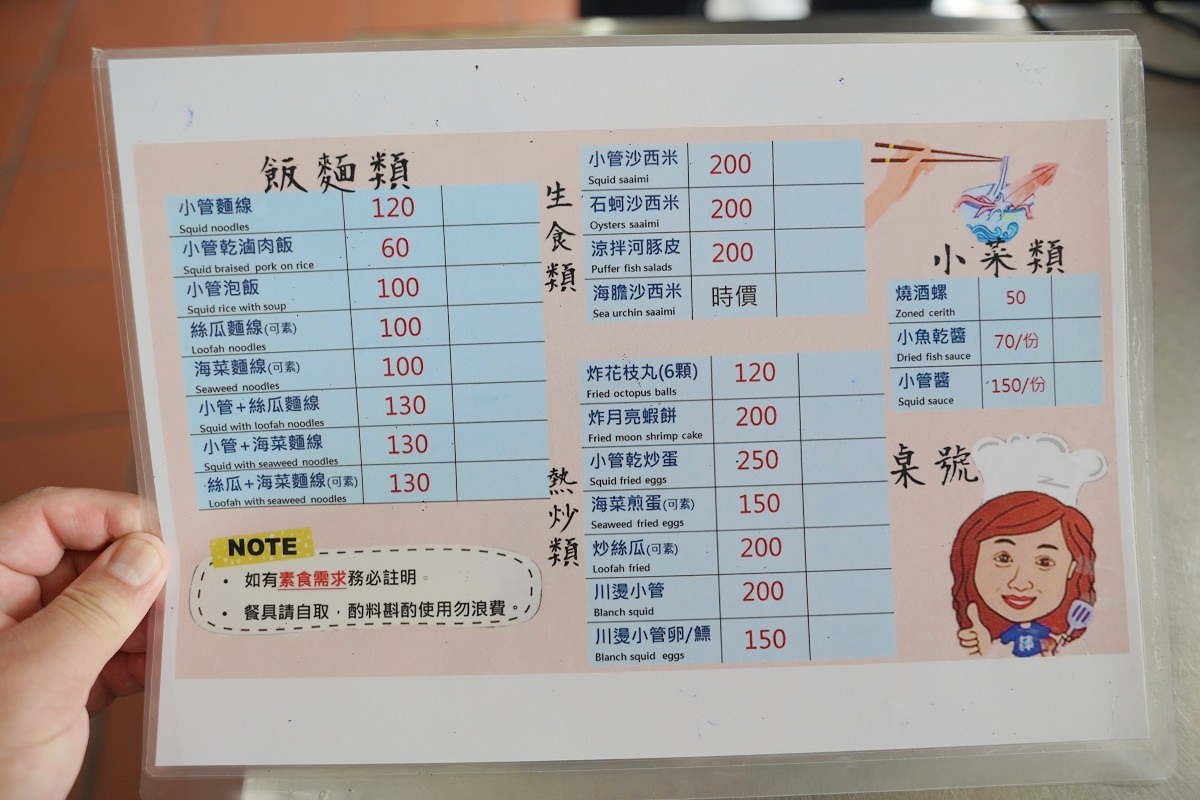 飯麵類
小管麵線 120
Squid noodles
小管乾滷肉飯 60
Squid braised pork on rice
小管泡飯 100
Squid rice with soup
絲瓜麵線(可素) 100
Loofah noodles
海菜麵線(可素) 100
Seaweed noodles
小管+絲瓜麵線 130
Squid with loofah noodles
小管+海菜麵線 130
Squid with seaweed noodles
絲瓜+海菜麵線(可素) 130
Loofah with seaweed noodles
NOTE
• 如有素食需求務必註明。
• 餐具請自取，酌料斟酌使用勿浪費。
生食類
小管沙西米 200
Squid saaimi
石蚵沙西米 200
Oysters saaimi
涼拌河豚皮 200
Puffer fish salads
海膽沙西米 時價
Sea urchin saaimi
熱炒類
炸花枝丸(6顆) 120
Fried octopus balls
炸月亮蝦餅 200
Fried moon shrimp cake
小管乾炒蛋 250
Squid fried eggs
海菜煎蛋(可素) 150
Seaweed fried eggs
炒絲瓜(可素) 200
Loofah fried
川燙小管 200
Blanch squid
川燙小管卵/鰾 150
Blanch squid eggs
小菜類
燒酒螺 50
Zoned cerith
小魚乾醬 70/份
Dried fish sauce
小管醬 150/份
Squid sauce
桌號